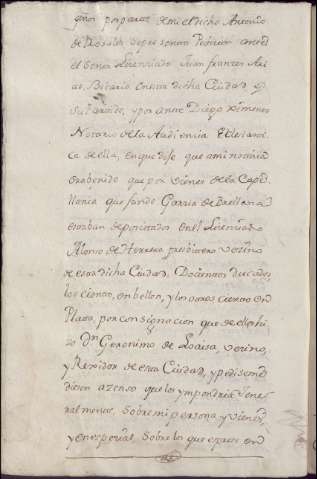 años por parte de mi el dicho Antonio
de Rosales se presento Peticion antes
el Señor Licenciado Juan Frances Ar
as, Bicario en esta dicha Ciudad y
su Partido, y por ante Diego Ximenes
Notario de la Audiencia Eclesiasti
ca de ella, en que dije que a mi noticia
era benido que por vienes de la Cape
llania que fundo Garcia de Orellana
estaban depositados en el Licenciado
Alonso de Herrera presbitero vezino
de esta dicha Ciudad, Docientos ducados,
los ciento, en bellon, y los otros ciento en
Plata, por consignacion que de ellos hi
zo Dn Geronimo de Loaisa, vezino,
y Rexidor de esta Ciudad, y pedi se me
diesen a zenso que los ympondria gene
ralmente, sobre mi persona, y vienes,
y en especial, sobre los que espreso en